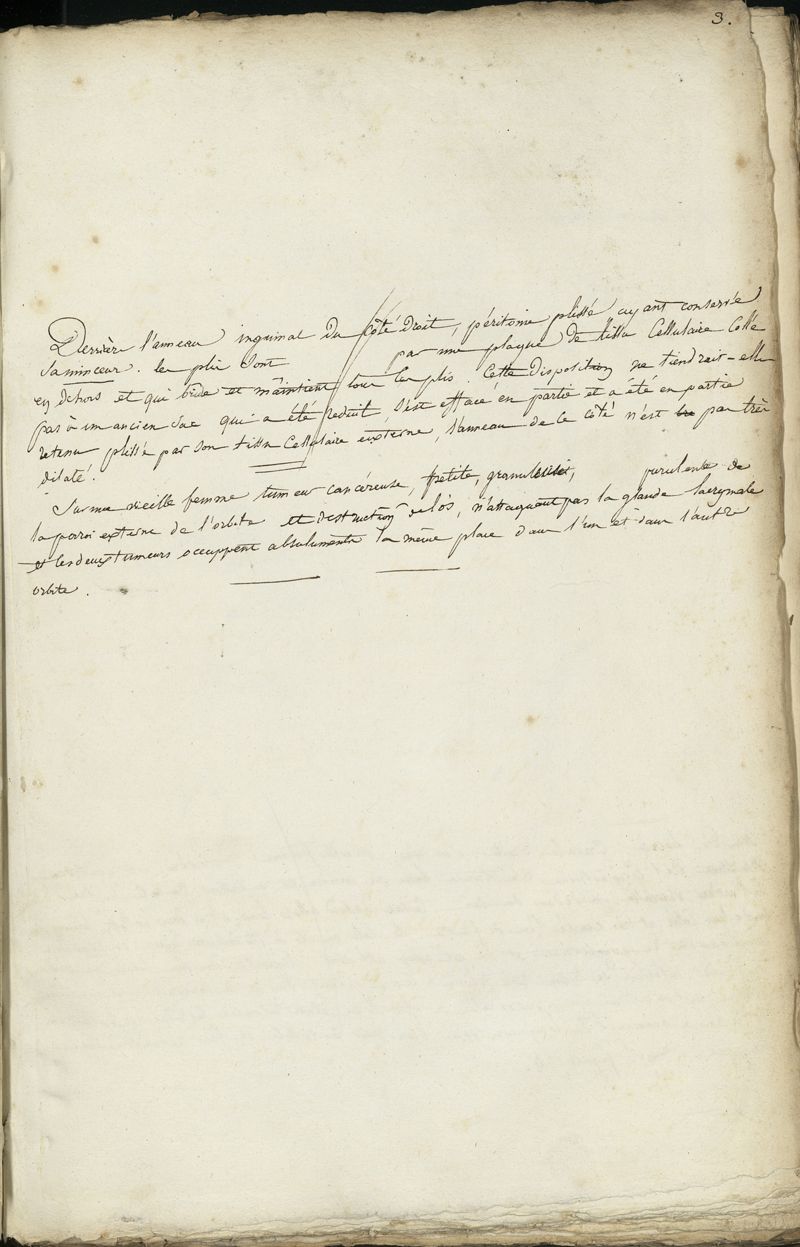 3.
Derrière l'anneau inguinal du côté droit, péritoine plissé ayant conservée
sa minceur. les plis sont par une plaque de tissu cellulaire collée
en dehors et qui bride et maintient tous les plis. Cette disposition ne tiendrait-elle
pas à un ancien sac qui a été réduit, s'est effacé en partie et a été en partie
retenu plissé par son tissu cellulaire externe, l'anneau de ce côté n'est pas très
dilaté.
Sur une vieille femme tumeur cancéreuse, petite, purulente de
la paroi externe de l'orbite et destruction de l'os, n'attaquant pas la glande lacrymale
et les deux tumeurs occuppent absolument la même place dans l'un et dans l'autre
orbite.